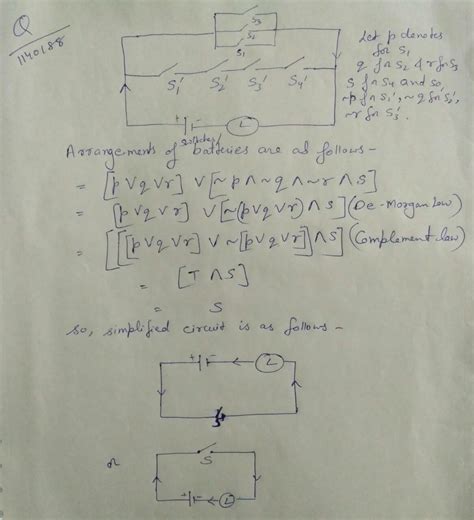 Q
1140188
S₃
S₂
S₁
S₁' S₂' S₃' S₄'
L
Let p denotes
for S₁
q for S₂ & r for S₃
S for S₄ and so
~p for S₁', ~q for S₂',
~r for S₃'.
switches/
Arrangements of batteries are as follows -
= [p∨q∨r] ∨[~p∧~q∧~r∧S]
= [p∨q∨r] ∨[~(p∨q∨r)∧S] (De-Morgan Law)
= [[[p∨q∨r] ∨~[p∨q∨r]]∧S] (Complement law)
= [T∧S]
= S
so, simplified circuit is as follows -
L
S
or
S
L